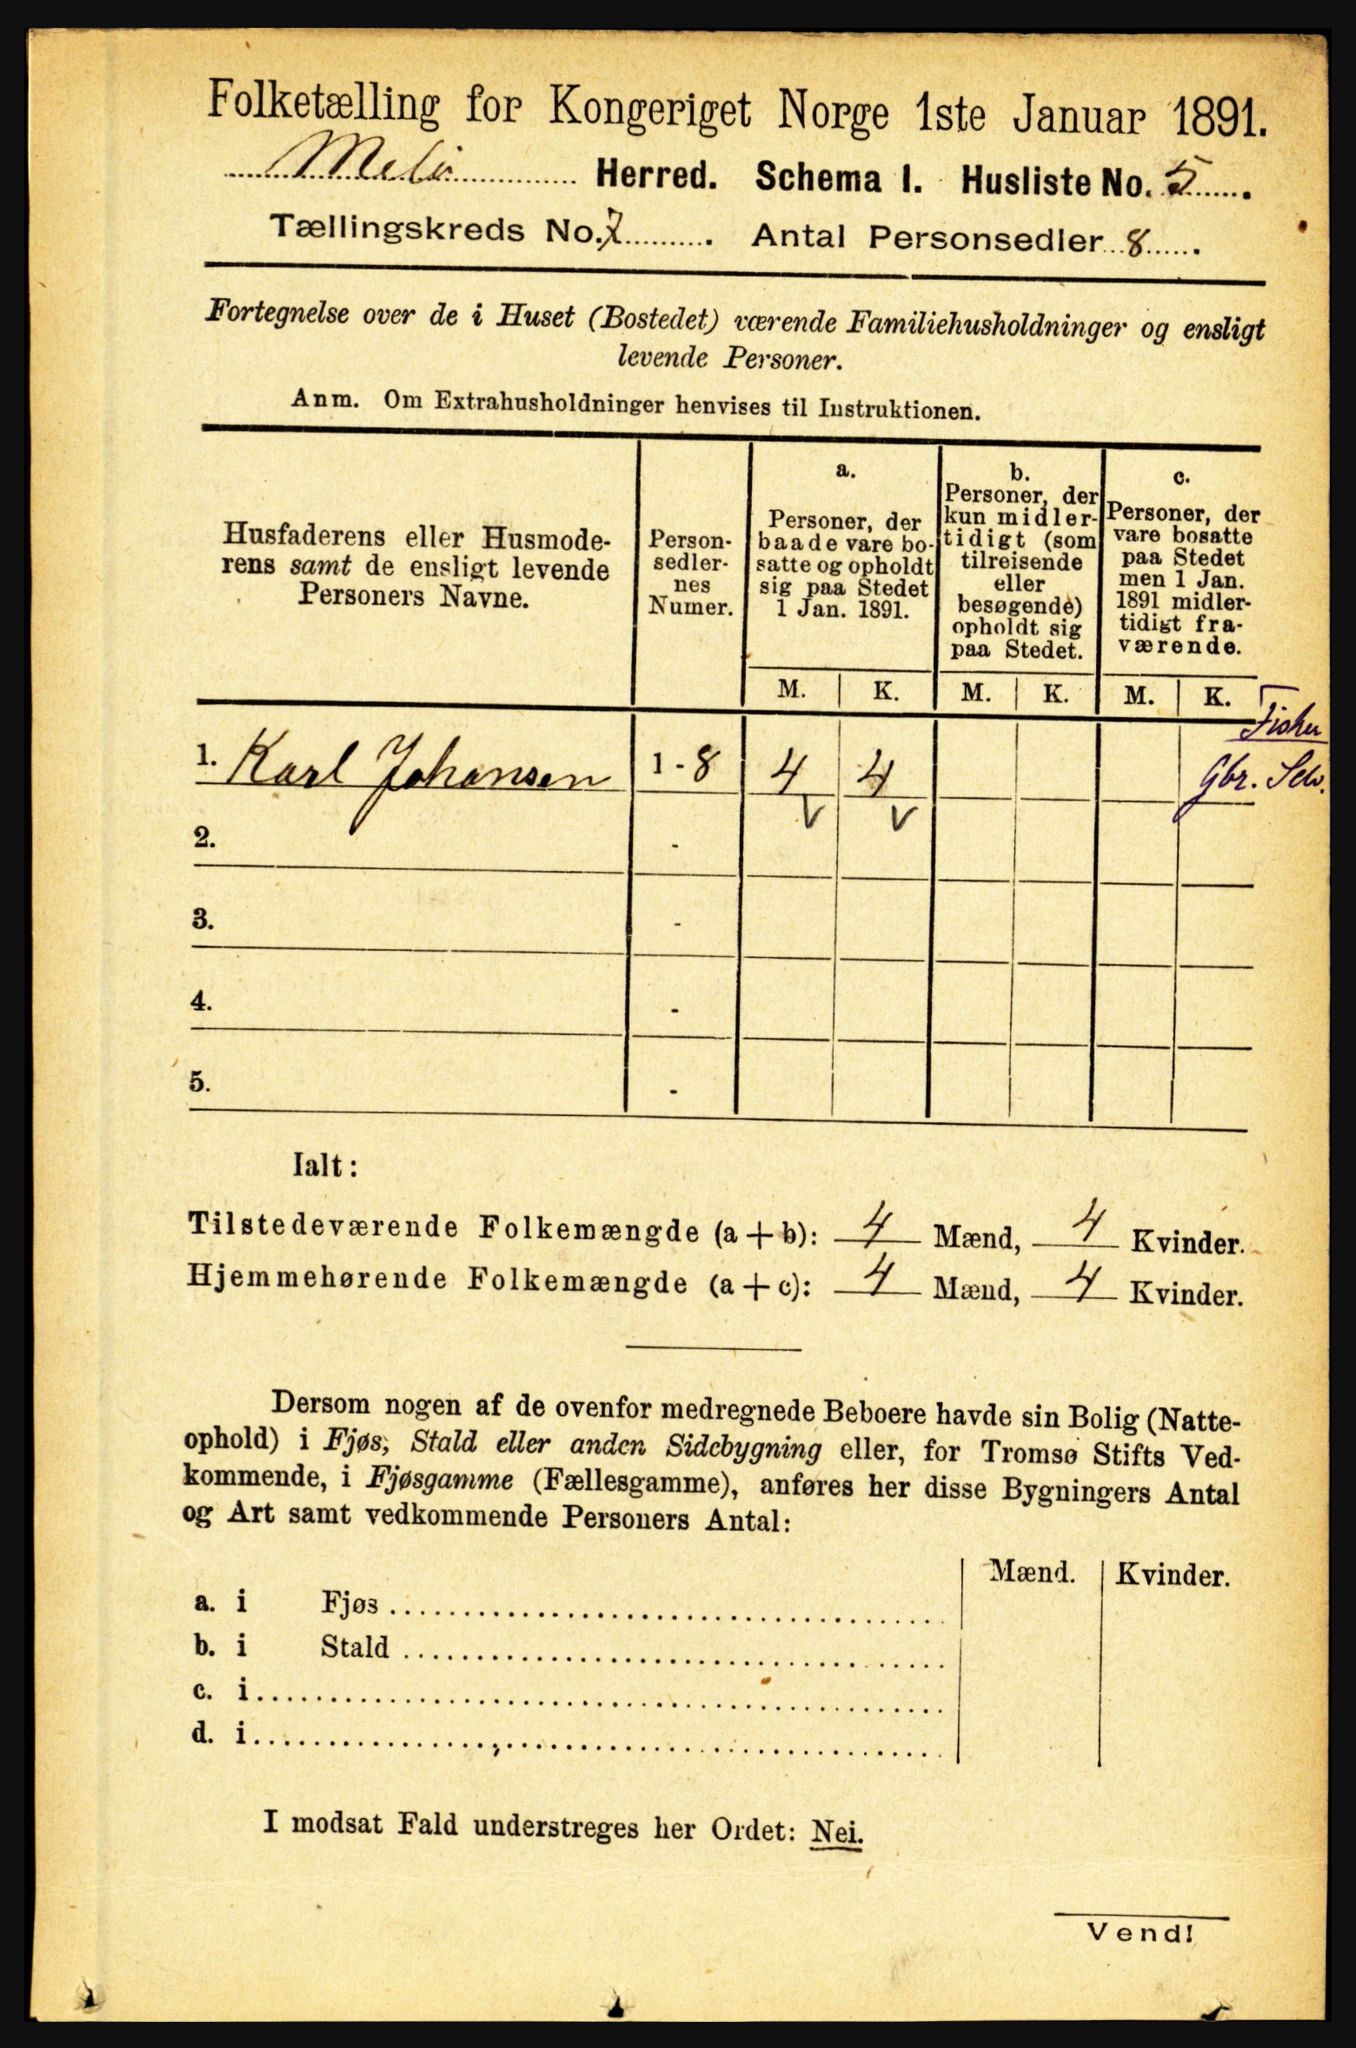 Folketælling for Kongeriget Norge 1ste Januar 1891.
Melø Herred. Schema I. Husliste No. 5.
Tællingskreds No. 7. Antal Personsedler 8.
Fortegnelse over de i Huset (Bostedet) værende Familiehusholdninger og ensligt
levende Personer.
Anm. Om Extrahusholdninger henvises til Instruktionen.
Husfaderens eller Husmode-
rens samt de ensligt levende
Personers Navne.
Person-
sedler-
nes
Numer.
a.
Personer, der
baade vare bo-
satte og opholdt
sig paa Stedet
1 Jan. 1891.
b.
Personer, der
kun midler-
tidigt (som
tilreisende
eller
besøgende)
opholdt sig
paa Stedet.
c.
Personer, der
vare bosatte
paa Stedet
men 1 Jan.
1891 midler-
tidigt fra-
værende.
M. K. M. K. M. K.
Fisker
1. Karl Johansen 1-8 4 4 Gbr. Selv.
v v
2. -
3. -
4. -
5. -
Ialt:
Tilstedeværende Folkemængde (a+b): 4 Mænd, 4 Kvinder.
Hjemmehørende Folkemængde (a+c): 4 Mænd, 4 Kvinder.
Dersom nogen af de ovenfor medregnede Beboere havde sin Bolig (Natte-
ophold) i Fjøs, Stald eller anden Sidebygning eller, for Tromsø Stifts Ved-
kommende, i Fjøsgamme (Fællesgamme), anføres her disse Bygningers Antal
og Art samt vedkommende Personers Antal:
Mænd. Kvinder.
a. i Fjøs
b. i Stald
c. i
d. i
I modsat Fald understreges her Ordet: Nei.
Vend!